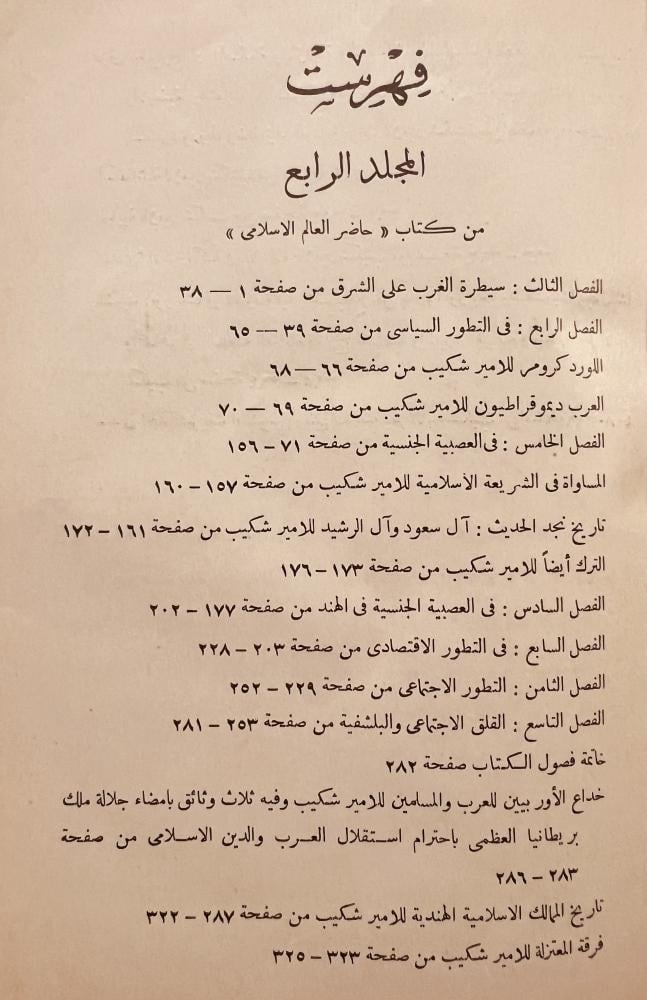 فهرست
المجلد الرابع
من كتاب « حاضر العالم الاسلامى »
الفصل الثالث : سيطرة الغرب على الشرق من صفحة ١ — ٣٨
الفصل الرابع : فى التطور السياسى من صفحة ٣٩ — ٦٥
اللورد كرومر للامير شكيب من صفحة ٦٦ — ٦٨
العرب ديموقراطيون للامير شكيب من صفحة ٦٩ — ٧٠
الفصل الخامس : فى العصبية الجنسية من صفحة ٧١ – ١٥٦
المساواة فى الشريعة الأسلامية للامير شكيب من صفحة ١٥٧ – ١٦٠
تاريخ نجد الحديث : آل سعود وآل الرشيد للامير شكيب من صفحة ١٦١ – ١٧٢
الترك أيضاً للامير شكيب من صفحة ١٧٣ – ١٧٦
الفصل السادس : فى العصبية الجنسية فى الهند من صفحة ١٧٧ – ٢٠٢
الفصل السابع : فى التطور الاقتصادى من صفحة ٢٠٣ – ٢٢٨
الفصل الثامن : التطور الاجتماعى من صفحة ٢٢٩ – ٢٥٢
الفصل التاسع : القلق الاجتماعى والبلشفية من صفحة ٢٥٣ – ٢٨١
خاتمة فصول الكتاب صفحة ٢٨٢
خداع الأوربيين للعرب والمسلمين للامير شكيب وفيه ثلاث وثائق بامضاء جلالة ملك
بريطانيا العظمى باحترام استقلال العرب والدين الاسلامى من صفحة
٢٨٣ – ٢٨٦
تاريخ الممالك الاسلامية الهندية للامير شكيب من صفحة ٢٨٧ – ٣٢٢
فرقة المعتزلة للامير شكيب من صفحة ٣٢٣ – ٣٢٥